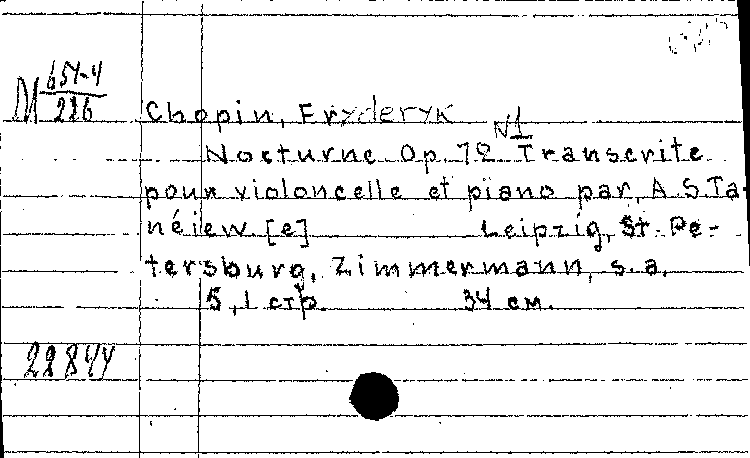 M 654-4
226
Chopin, Fryderyk
Nocturne Op. 72 N1 Transcrite
pour violoncelle et piano par A.S.Ta-
néiew [e] Leipzig, St. Pe-
tersburg, Zimmermann, s.a.
5,1 стр. 34 см.
22844